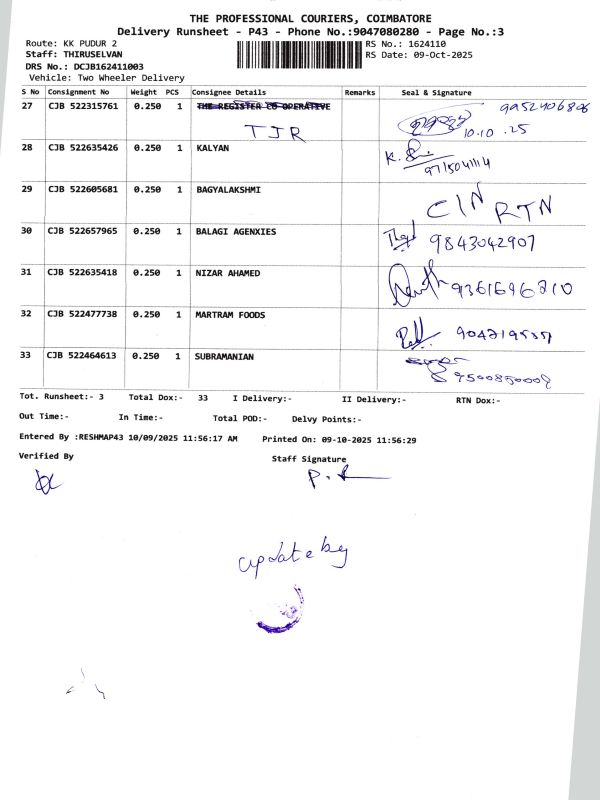 THE PROFESSIONAL COURIERS, COIMBATORE
Delivery Runsheet - P43 - Phone No.:9047080280 - Page No.:3
Route: KK PUDUR 2 RS No.: 1624110
Staff: THIRUSELVAN RS Date: 09-Oct-2025
DRS No.: DCJB162411003
Vehicle: Two Wheeler Delivery
S No Consignment No Weight PCS Consignee Details Remarks Seal & Signature
27 CJB 522315761 0.250 1 THE REGISTER CO OPERATIVE 9952406806
TJR 10.10.25
28 CJB 522635426 0.250 1 KALYAN
9715041114
29 CJB 522605681 0.250 1 BAGYALAKSHMI
C/N RTN
30 CJB 522657965 0.250 1 BALAGI AGENXIES
9843042907
31 CJB 522635418 0.250 1 NIZAR AHAMED
9361696210
32 CJB 522477738 0.250 1 MARTRAM FOODS
33 CJB 522464613 0.250 1 SUBRAMANIAN
9500850009
Tot. Runsheet:- 3 Total Dox:- 33 I Delivery:- II Delivery:- RTN Dox:-
Out Time:- In Time:- Total POD:- Delvy Points:-
Entered By :RESHMAP43 10/09/2025 11:56:17 AM Printed On: 09-10-2025 11:56:29
Verified By Staff Signature
update by